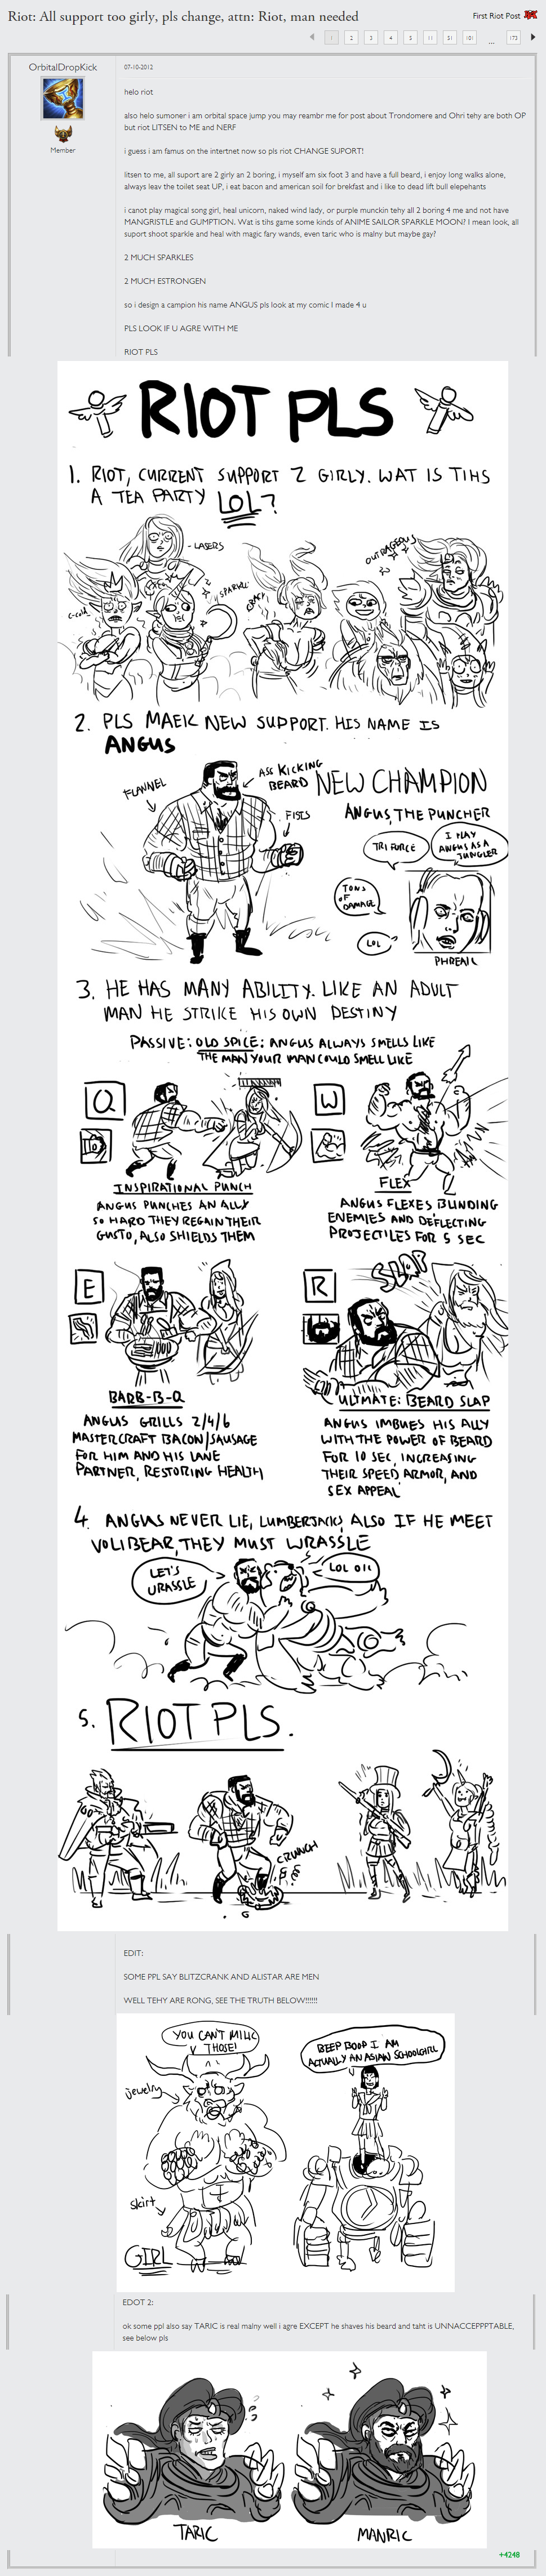 Riot: All support too girly, pls change, attn: Riot, man needed
First Riot Post
1 2 3 4 5 11 51 101 ... 173
OrbitalDropKick
Member
07-10-2012
helo riot
also helo sumoner i am orbital space jump you may reambr me for post about Trondomere and Ohri tehy are both OP
but riot LITSEN to ME and NERF
i guess i am famus on the intertnet now so pls riot CHANGE SUPORT!
litsen to me, all suport are 2 girly an 2 boring, i myself am six foot 3 and have a full beard, i enjoy long walks alone,
always leav the toilet seat UP, i eat bacon and american soil for brekfast and i like to dead lift bull elepehants
i canot play magical song girl, heal unicorn, naked wind lady, or purple munckin tehy all 2 boring 4 me and not have
MANGRISTLE and GUMPTION. Wat is tihs game some kinds of ANIME SAILOR SPARKLE MOON? I mean look, all
suport shoot sparkle and heal with magic fary wands, even taric who is malny but maybe gay?
2 MUCH SPARKLES
2 MUCH ESTRONGEN
so i design a campion his name ANGUS pls look at my comic I made 4 u
PLS LOOK IF U AGRE WITH ME
RIOT PLS
RIOT PLS
1. RIOT, CURRENT SUPPORT 2 GIRLY. WAT IS TIHS
A TEA PARTY LOL?
- LASERS
OUTRAGEOUS
SPARKLE
2. PLS MAEK NEW SUPPORT. HIS NAME IS
ANGUS
FLANNEL
ASS KICKING
BEARD
FISTS
NEW CHAMPION
ANGUS, THE PUNCHER
TRI FORCE
I PLAY
ANGUS AS A
JUNGLER
TONS
OF
DAMAGE
LOL
PHREAK
3. HE HAS MANY ABILITY. LIKE AN ADULT
MAN HE STRIKE HIS OWN DESTINY
PASSIVE: OLD SPICE: ANGUS ALWAYS SMELLS LIKE
THE MAN YOUR MAN COULD SMELL LIKE
Q
INSPIRATIONAL PUNCH
ANGUS PUNCHES AN ALLY
SO HARD THEY REGAIN THEIR
GUSTO, ALSO SHIELDS THEM
W
FLEX
ANGUS FLEXES BLINDING
ENEMIES AND DEFLECTING
PROJECTILES FOR 5 SEC
E
BARB-B-Q
ANGUS GRILLS 2/4/6
MASTERCRAFT BACON/SAUSAGE
FOR HIM AND HIS LANE
PARTNER, RESTORING HEALTH
R
SLAP
ULTIMATE: BEARD SLAP
ANGUS IMBUES HIS ALLY
WITH THE POWER OF BEARD
FOR 10 SEC, INCREASING
THEIR SPEED ARMOR, AND
SEX APPEAL
4. ANGUS NEVER LIE, LUMBERJACKS, ALSO IF HE MEET
VOLIBEAR, THEY MUST WRASSLE
LET'S
WRASSLE
LOL OK
5. RIOT PLS.
CRUNCH
EDIT:
SOME PPL SAY BLITZCRANK AND ALISTAR ARE MEN
WELL TEHY ARE RONG, SEE THE TRUTH BELOW!!!!!!
YOU CAN'T MILK
THOSE!
jewelry
skirt
GIRL
BEEP BOOP I AM
ACTUALLY AN ASIAN SCHOOLGIRL
EDOT 2:
ok some ppl also say TARIC is real malny well i agre EXCEPT he shaves his beard and taht is UNNACCEPPPTABLE,
see below pls
TARIC
MANRIC
+4248